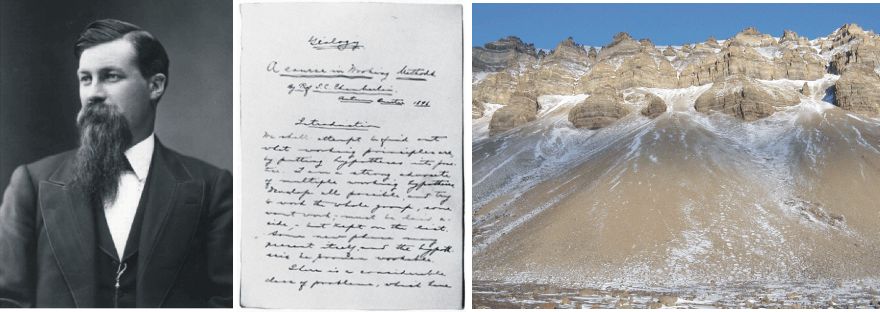 Geology
A course in Working Methods
By Prof T. C. Chamberlin.
Autumn Quarter 1896
Introduction
We shall attempt to find out
what working principles are
by putting hypotheses into prac-
tice. I am a strong advocate
of multiple working hypotheses
Develop all possible, and try
to work the whole group, some
wont work, must be laid a-
side, but kept on the list.
Some new phase may
present itself and the hypoth-
esis be proven workable.
There is a considerable
class of problems, which have